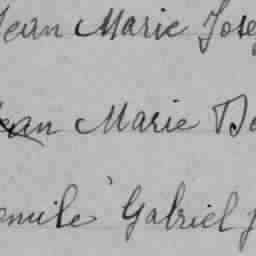 Jean Marie Jose
Jean Marie
Emile Gabriel